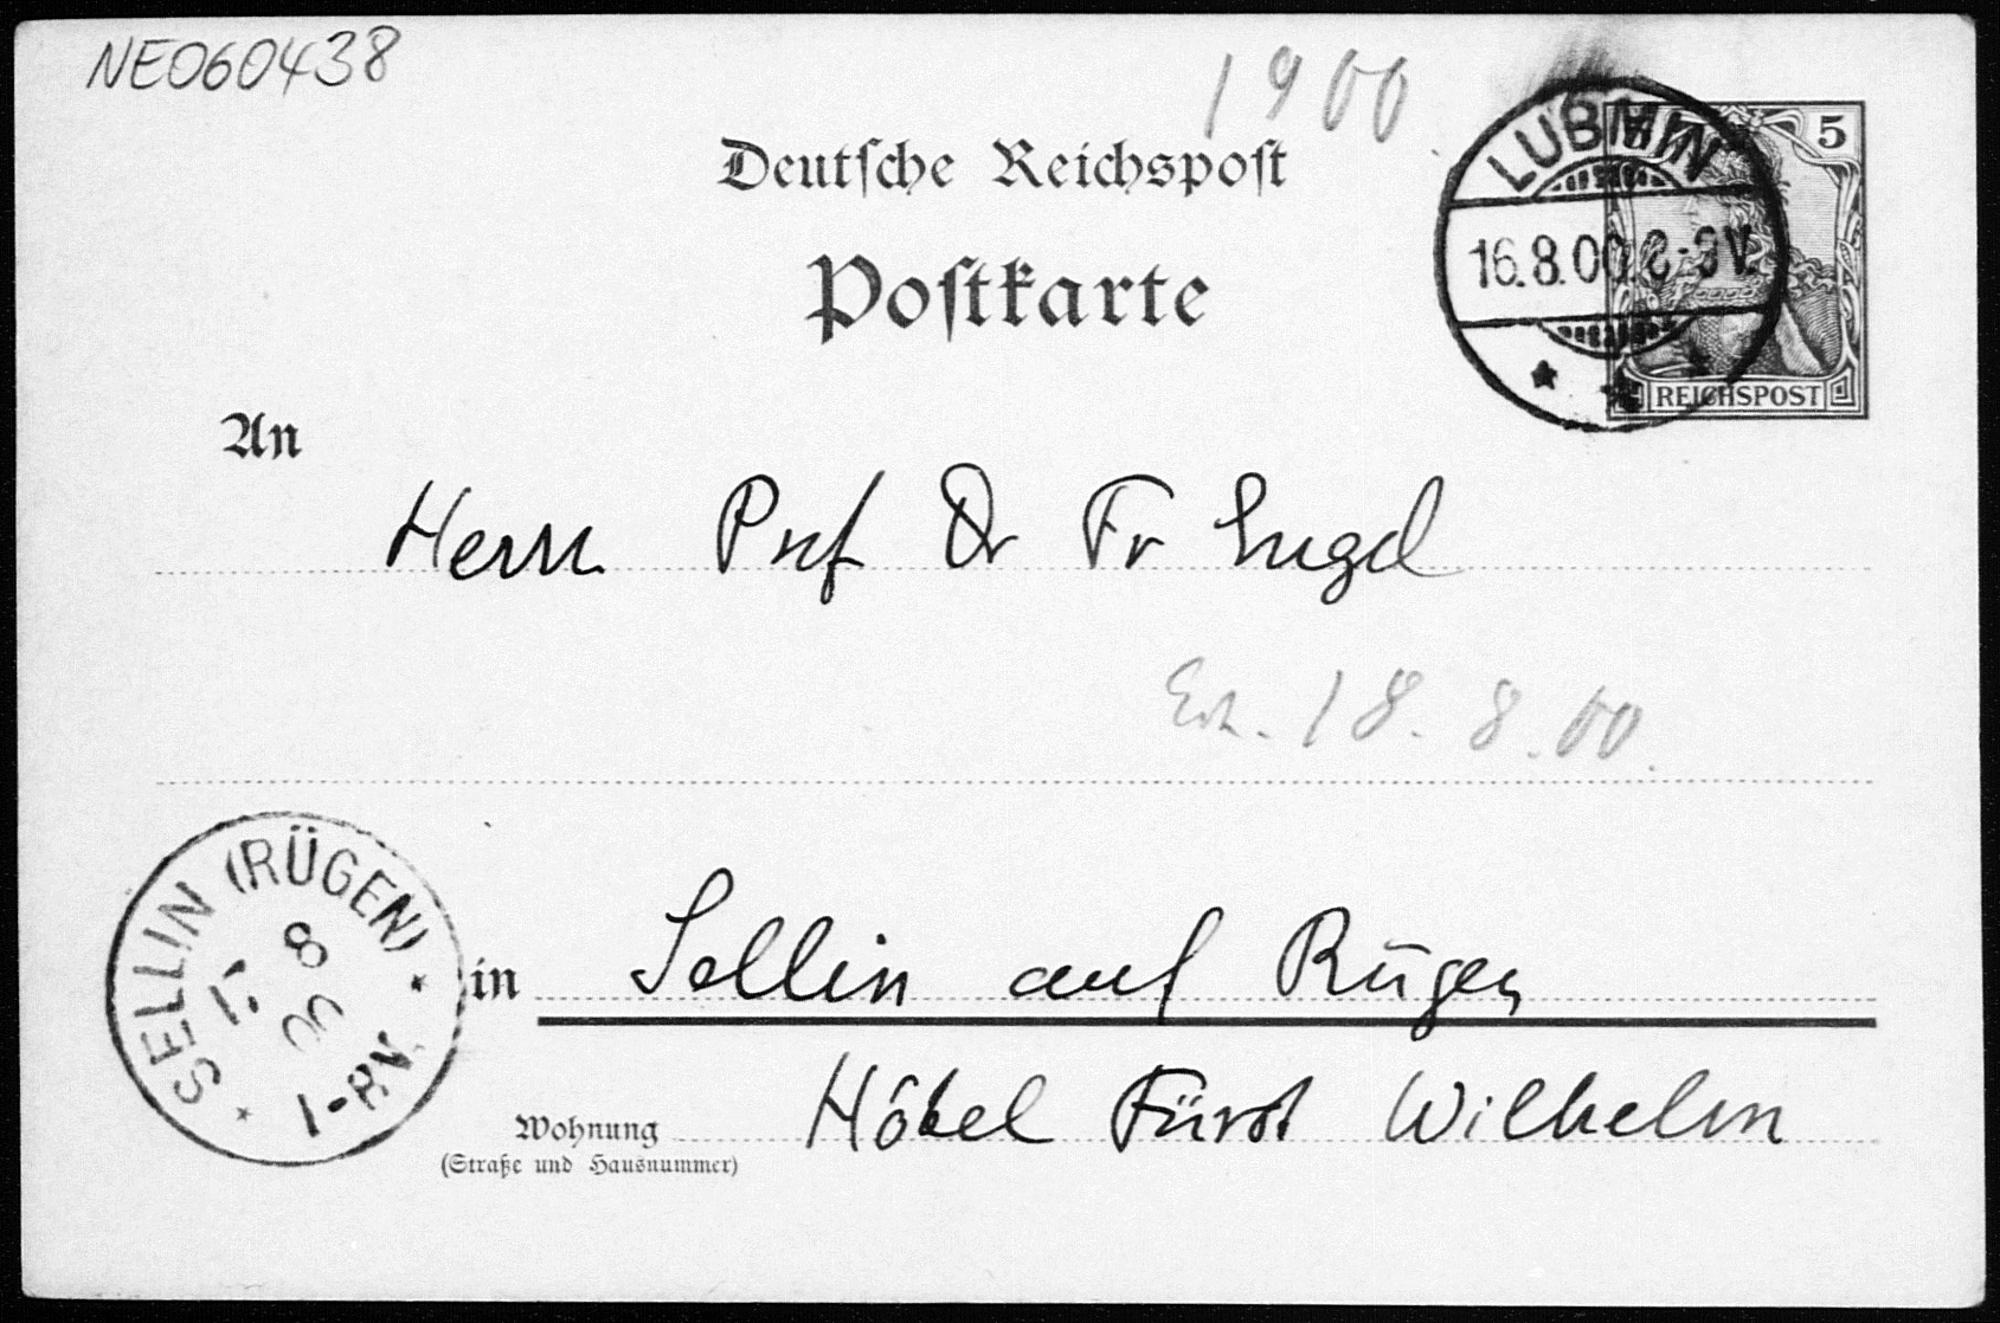 NE060438
1900
Deutſche Reichspost
Postkarte
LUBMIN
16.8.00.8-9V.
5
REICHSPOST
An
Herrn Prof Dr Fr Engel
Erh. 18.8.00.
SELLIN (RÜGEN)
17 8
00
1-8V.
in Sellin auf Rügen
Hôtel Fürst Wilhelm
Wohnung
(Straße und Hausnummer)